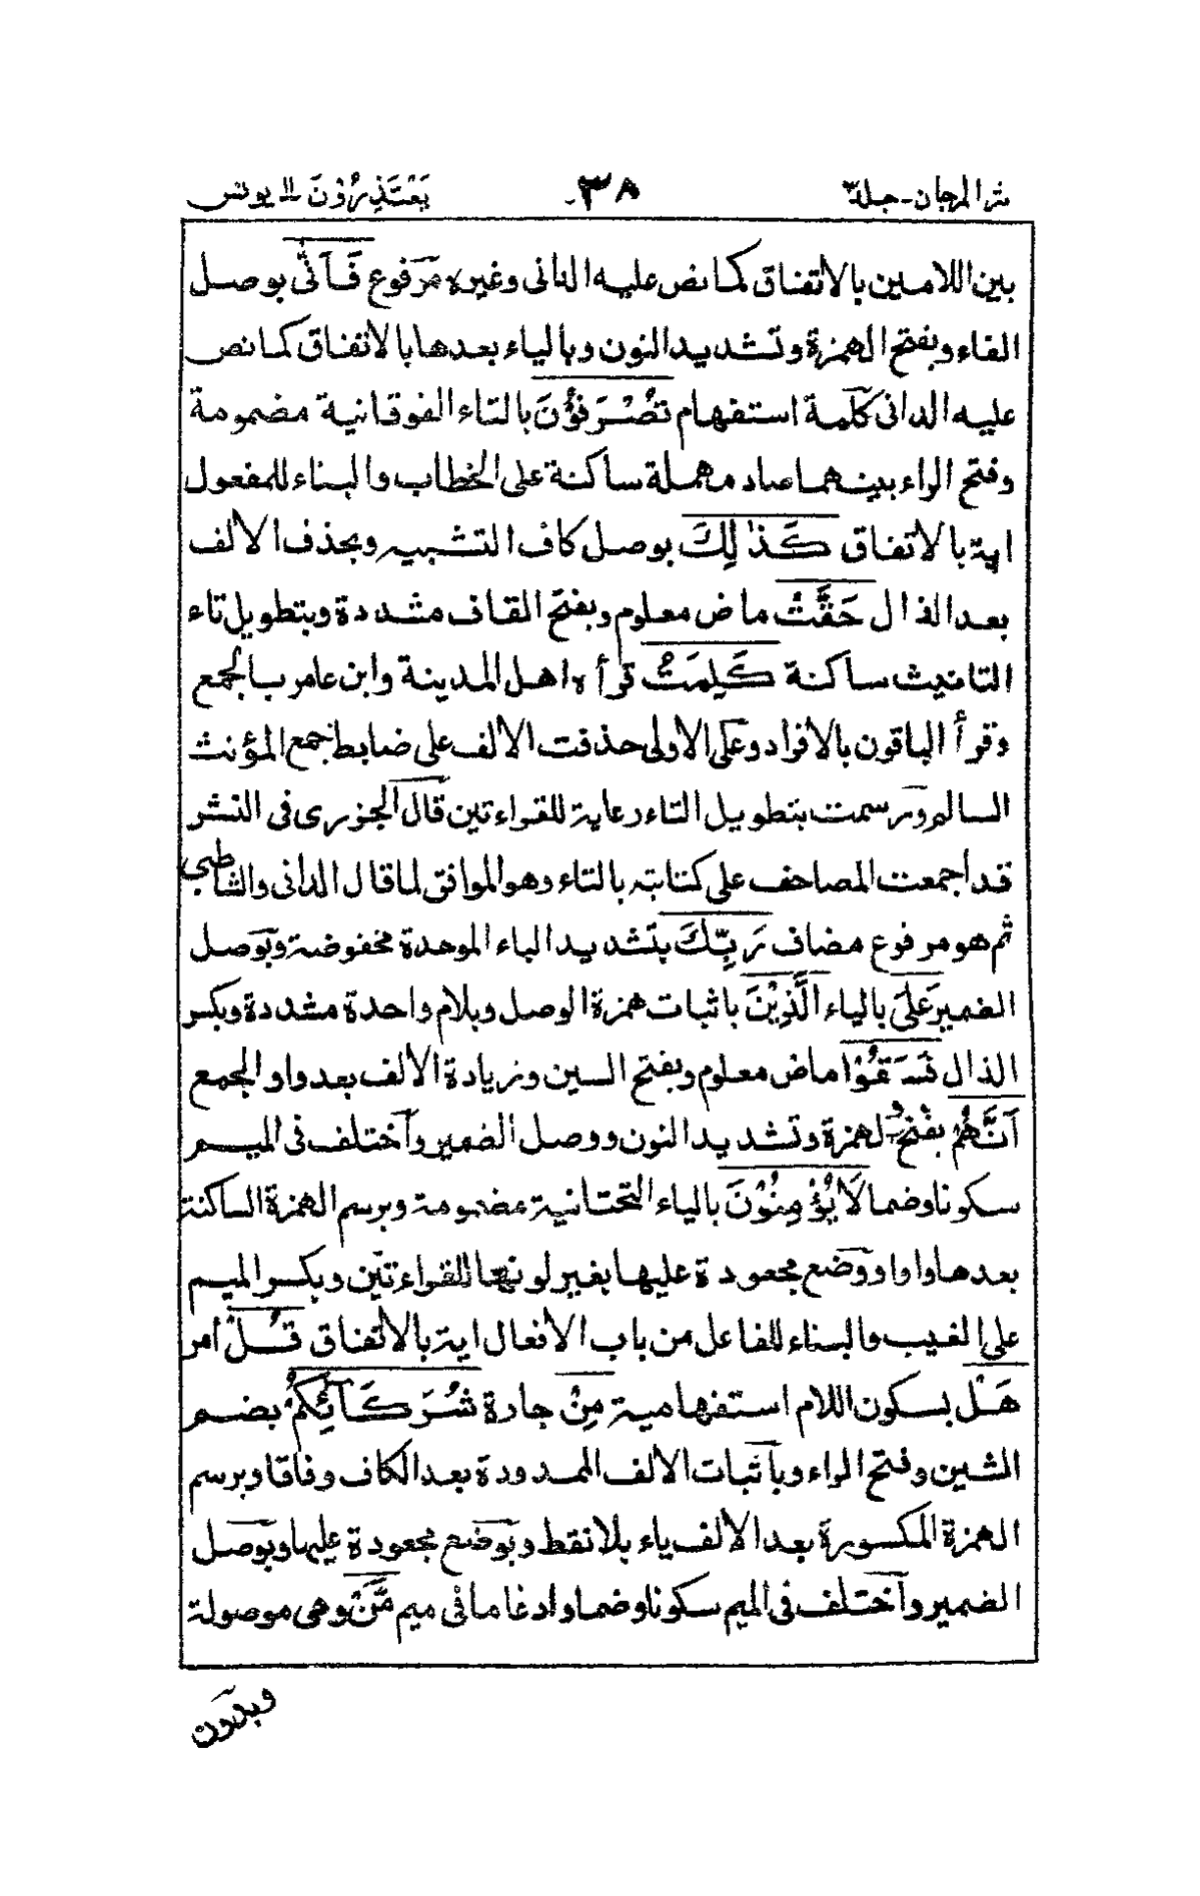 نثر المرجان - جلد ٣ ٣٨ يَعْتَذِرُوْنَ ١١ يونس
بين اللامين بالاتفاق كما نص عليه الدانى وغيره مرفوع فَاَنّٰى بوصل
الفاء وبفتح الهمزة وتشديد النون وبالياء بعدها بالاتفاق كما نص
عليه الدانى كلمة استفهام تُصْرَفُوْنَ بالتاء الفوقانية مضمومة
وفتح الراء بينهما صاد مهملة ساكنة على الخطاب والبناء للمفعول
اية بالاتفاق كَذٰلِكَ بوصل كاف التشبيه وبحذف الالف
بعد الذال حَقَّتْ ماض معلوم وبفتح القاف مشددة وبتطويل تاء
التانيث ساكنة كَلِمَتُ قرأه اهل المدينة وابن عامر بالجمع
وقرأ الباقون بالافراد وعلى الاولى حذفت الالف على ضابط جمع المؤنث
السالم ورسمت بتطويل التاء رعاية للقراءتين قال الجزرى فى النشر
قد اجمعت المصاحف على كتابته بالتاء وهو الموافق لما قال الدانى والشاطبى
ثم هو مرفوع مضاف رَبِّكَ بتشديد الباء الموحدة مخفوضة وبوصل
الضمير عَلَى بالياء الَّذِيْنَ باثبات همزة الوصل وبلام واحدة مشددة وبكسر
الذال فَسَقُوْا ماض معلوم وبفتح السين وزيادة الالف بعد واو الجمع
اَنَّهُمْ بفتح الهمزة وتشديد النون ووصل الضمير واختلف فى الميم
سكونا وضما لَا يُؤْمِنُوْنَ بالياء التحتانية مضمومة وبرسم الهمزة الساكنة
بعدها واوا ووضع مجعودة عليها بغير لونها للقراءتين وبكسر الميم
على الغيب والبناء للفاعل من باب الافعال اية بالاتفاق قُلْ امر
هَلْ بسكون اللام استفهامية مِنْ جارة شُرَكَآئِكُمْ بضم
الشين وفتح الراء وباثبات الالف الممدودة بعد الكاف وفاقا وبرسم
الهمزة المكسورة بعد الالف ياء بلا نقط وبوضع مجعودة عليها وبوصل
الضمير واختلف فى الميم سكونا وضما وادغاما فى ميم مَّنْ وهى موصولة
وبدون